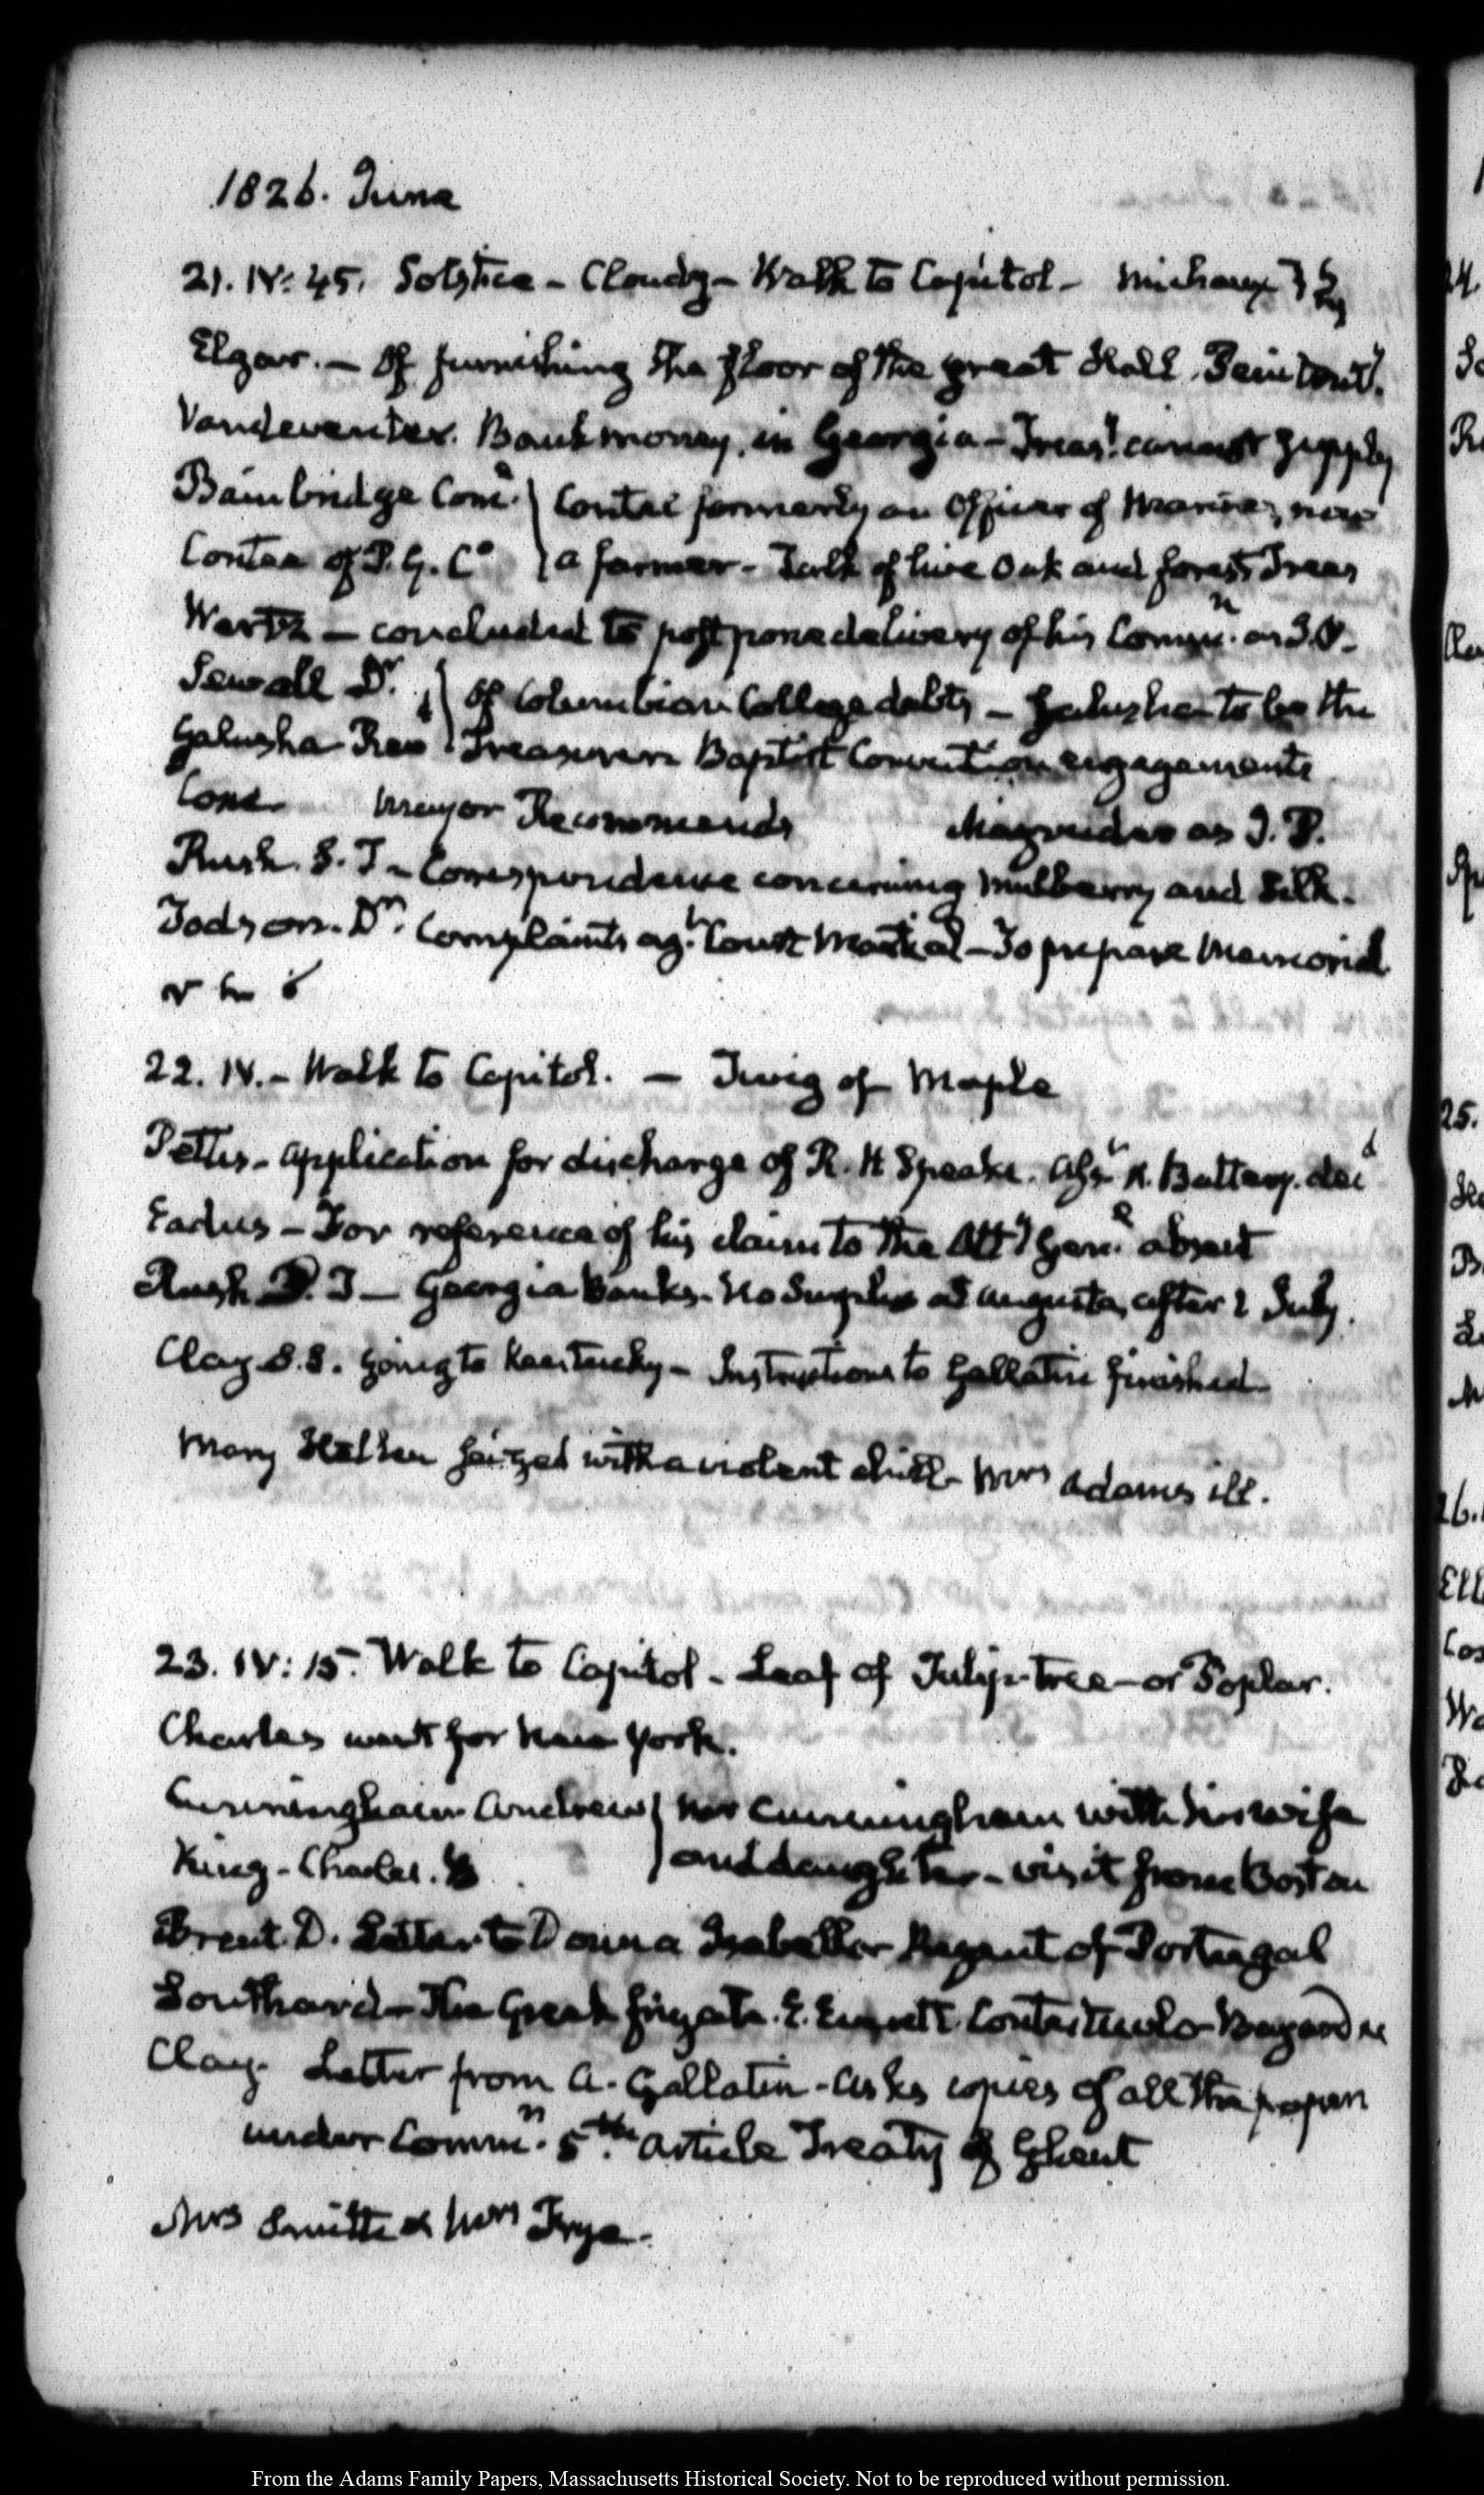 1826. June
21. IV: 45. Solstice - Cloudy - Walk to Capitol - Michaux
Elgar. - Of furnishing the floor of the great Hall. Penitent.y
Vandeventer. Bank money in Georgia - Treas.y cannot supply
Bainbridge Com.e Contee formerly an Officer of Marines, now
Contee of P. G. Co a farmer - Talk of live Oak and forest Trees
Worth - concluded to postpone delivery of his Commn. as
Sewall Dr. Of Columbian College debts - Galusha to be the
Galusha Rev Treasurer Baptist Convention engagements
Cone. Mayor Recommends Magruder as J. P.
Rush. S. T - Correspondence concerning Mulberry and Silk.
Todson. Dr. Complaints agt. Court Martial - To prepare Memorial
22. IV. - Walk to Capitol. - Twig of Maple
Pettis - application for discharge of R. H Speake. K. Battery.
Eadus - For reference of his claim to the Att.y Gen.l absent
Rush S. T - Georgia Banks. No Supplies at Augusta, after 1 July.
Clay S. S. going to Kentucky - Instructions to Gallatin finished
Mary Hellen seized with a violent chill - Mrs Adams ill.
23. IV: 15. Walk to Capitol - Leaf of Tulip-tree - or Poplar.
Charles went for New York.
Cunningham Andrew Mr Cunningham with his wife
King - Charles. and daughter - visit from Boston
Brent. D. Letter to Donna Isabella Regent of Portugal
Southard - The Greek frigate. E. Everett.
Clay. Letter from A. Gallatin - asks copies of all the papers
under Commn. 5.th article Treaty of Ghent
Mrs Smith & Mrs Frye.
From the Adams Family Papers, Massachusetts Historical Society. Not to be reproduced without permission.